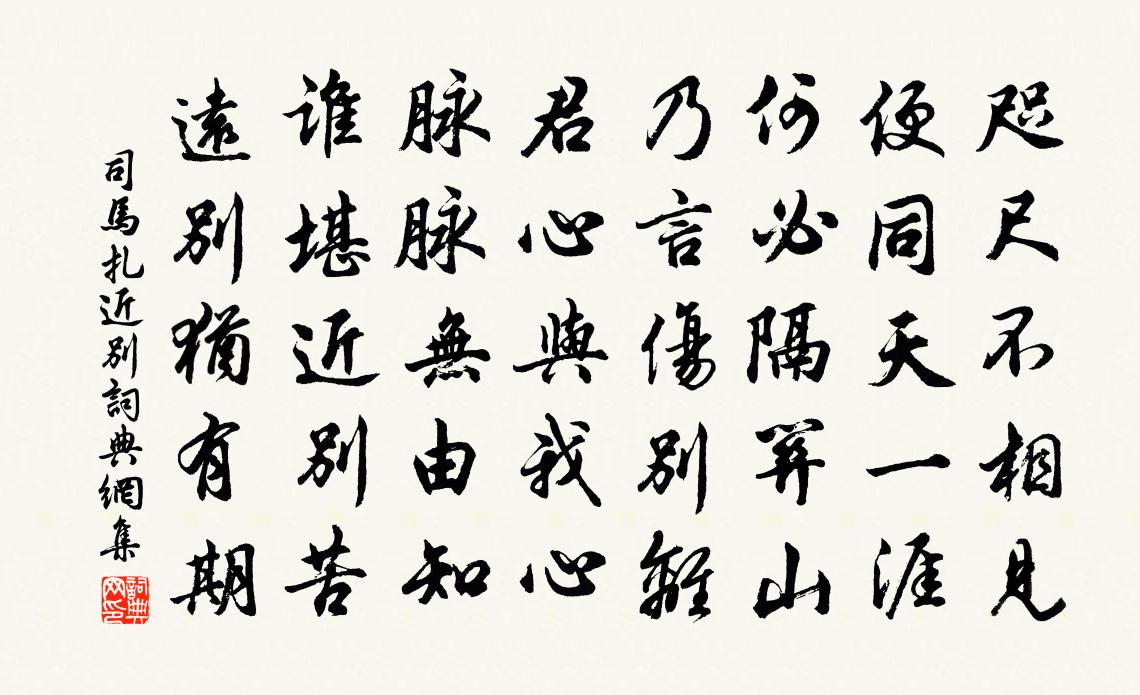 咫尺不相見
便同天一涯
何必隔關山
乃言傷別離
君心與我心
脉脉無由知
誰堪近別苦
遠別猶有期
司馬扎近別詞典網集
詞典
网印